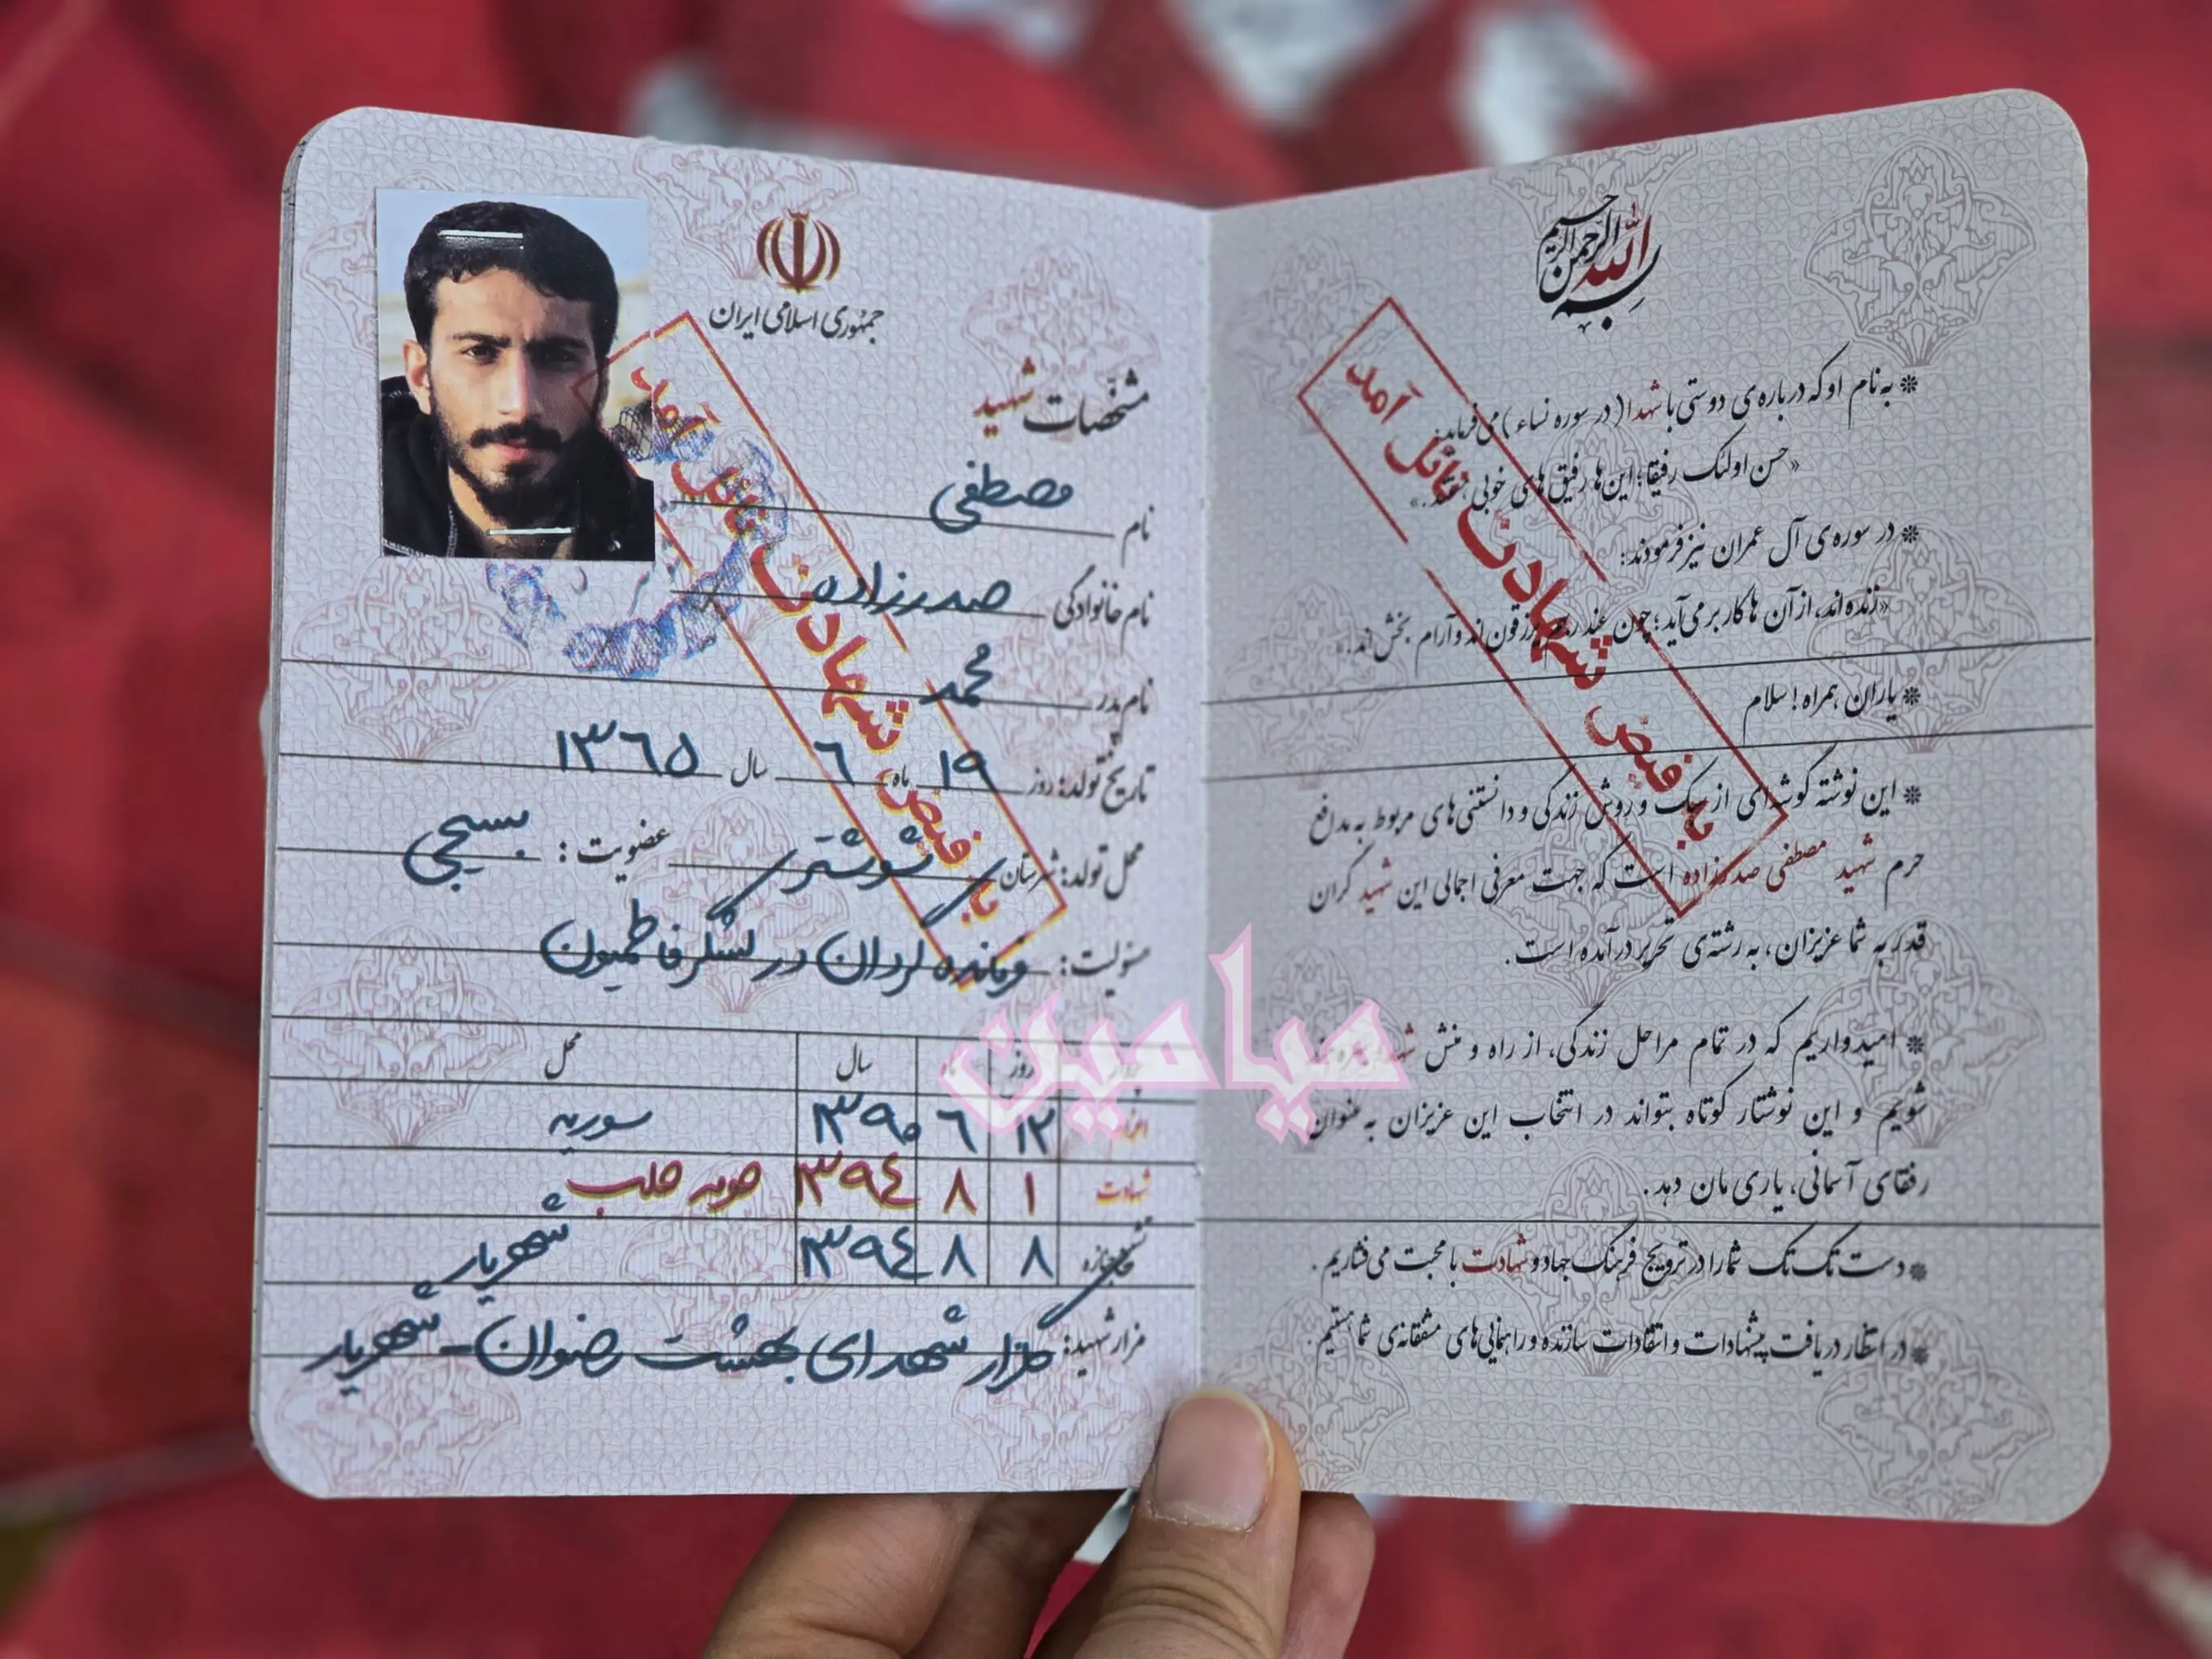 بسم الله الرحمن الرحیم
* به نام او که درباره‌ی دوستی با شهدا (در سوره نساء) می‌فرماید:
«حسن اولئک رفیقا؛ این‌ها رفیق‌های خوبی هستند.»
* در سوره‌ی آل عمران نیز فرمودند:
«زنده‌اند، از آن ها کار بر می‌آید؛ چون عند ربهم یرزقون‌اند و آرام بخش‌اند.»
* یاران همراه! سلام
* این نوشته گوشه‌ای از سبک و روش زندگی و دانستنی‌های مربوط به مدافع
حرم شهید مصطفی صدرزاده است که جهت معرفی اجمالی این شهید گران
قدر به شما عزیزان، به رشته‌ی تحریر درآمده است.
* امیدواریم که در تمام مراحل زندگی، از راه و منش شهدا
شویم و این نوشتار کوتاه بتواند در انتخاب این عزیزان به عنوان
رفقای آسمانی، یاری مان دهد.
* دست تک تک شما را در ترویج فرهنگ جهاد و شهادت با محبت می‌فشاریم.
* در انتظار دریافت پیشنهادات و انتقادات سازنده و راهنمایی‌های مشفقانه‌ی شما هستیم.
به فیض شهادت نائل آمد
جمهوری اسلامی ایران
مشخصات شهید
نام مصطفی
نام خانوادگی صدرزاده
نام پدر محمد
تاریخ تولد: روز ١٩ ماه ٦ سال ١٣٦٥
محل تولد: شهرستان شوشتر عضویت: بسیجی
مسئولیت: فرمانده گردان در لشگر فاطمیون
روز ماه سال محل
اعزام ١٢ ٦ ١٣٩٠ سوریه
شهادت ١ ٨ ١٣٩٤ حومه حلب
تشییع جنازه ٨ ٨ ١٣٩٤ شهریار
مزار شهید: گلزار شهدای بهشت رضوان - شهریار
به فیض شهادت نائل آمد
میامین